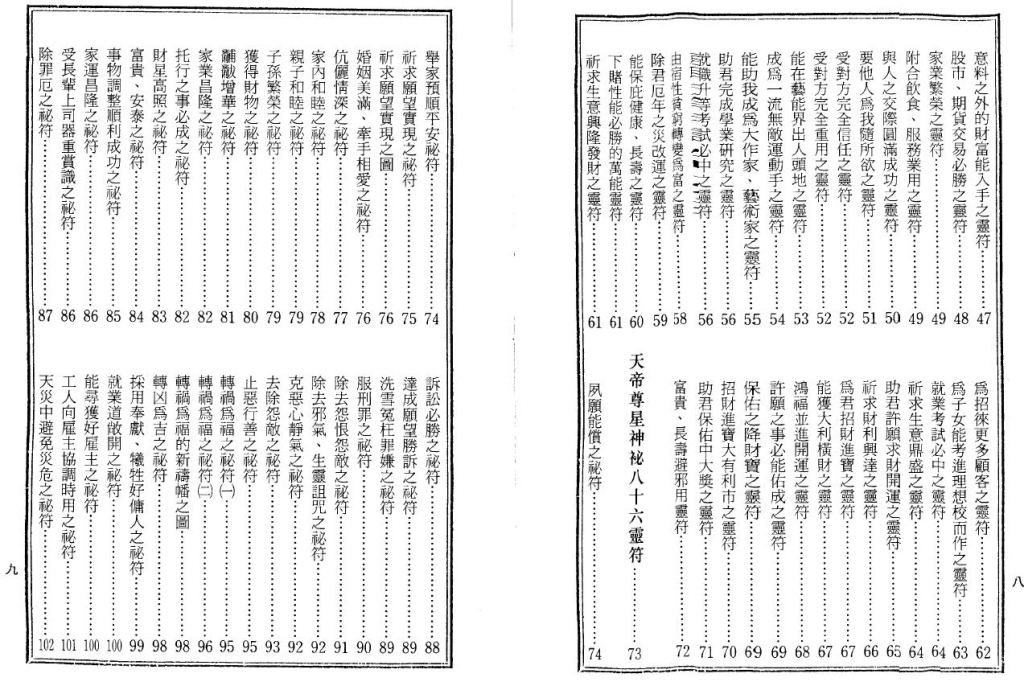 意料之外的財富能入手之靈符……47
股市、期貨交易必勝之靈符……48
家業繁榮之靈符……49
附合飲食、服務業用之靈符……49
與人之交際圓滿成功之靈符……50
要他人爲我隨所欲之靈符……51
受對方完全信任之靈符……52
受對方完全重用之靈符……52
能在藝能界出人頭地之靈符……53
成爲一流無敵運動手之靈符……54
能助我成爲大作家、藝術家之靈符……55
助君完成學業研究之靈符……56
就職升等考試必中之靈符……56
由宿性貧窮轉變爲富之靈符……58
除君厄年之災改運之靈符……59
能保庇健康、長壽之靈符……60
下賭性能必勝的萬能靈符……61
祈求生意興隆發財之靈符……61
爲招徠更多顧客之靈符……62
爲子女能考進理想校而作之靈符……63
就業考試必中之靈符……64
祈求生意鼎盛之靈符……64
助君許願求財開運之靈符……65
祈求財利興達之靈符……66
爲君招財進寶之靈符……67
能獲大利橫財之靈符……67
鴻福並進開運之靈符……68
許願之事必能佑成之靈符……69
保佑之降財寶之靈符……69
招財進寶大有利市之靈符……70
助君保佑中大獎之靈符……71
富貴、長壽避邪用靈符……72
天帝尊星神祕八十六靈符……73
夙願能償之祕符……74
八
舉家預順平安祕符……74
祈求願望實現之祕符……75
祈求願望實現之圖……76
婚姻美滿、牽手相愛之祕符……76
伉儷情深之祕符……77
家內和睦之祕符……78
親子和睦之祕符……79
子孫繁榮之祕符……79
獲得財物之祕符……80
黼黻增華之祕符……81
家業昌隆之祕符……82
托行之事必成之祕符……82
財星高照之祕符……83
富貴、安泰之祕符……84
事物調整順利成功之祕符……85
家運昌隆之祕符……86
受長輩上司器重賞識之祕符……86
除罪厄之祕符……87
訴訟必勝之祕符……88
達成願望勝訴之祕符……89
洗雪冤枉罪嫌之祕符……89
服刑罪之祕符……90
除去怨恨怨敵之祕符……91
除去邪氣、生靈詛咒之祕符……92
克惡心靜氣之祕符……92
去除怨敵之祕符……93
止惡行善之祕符……95
轉禍爲福之祕符㈠……95
轉禍爲福之祕符㈡……96
轉禍爲福的新禱幡之圖……98
轉凶爲吉之祕符……98
採用奉獻、犧牲好傭人之祕符……99
就業道敞開之祕符……100
能尋獲好雇主之祕符……100
工人向雇主協調時用之祕符……101
天災中避免災危之祕符……102
九